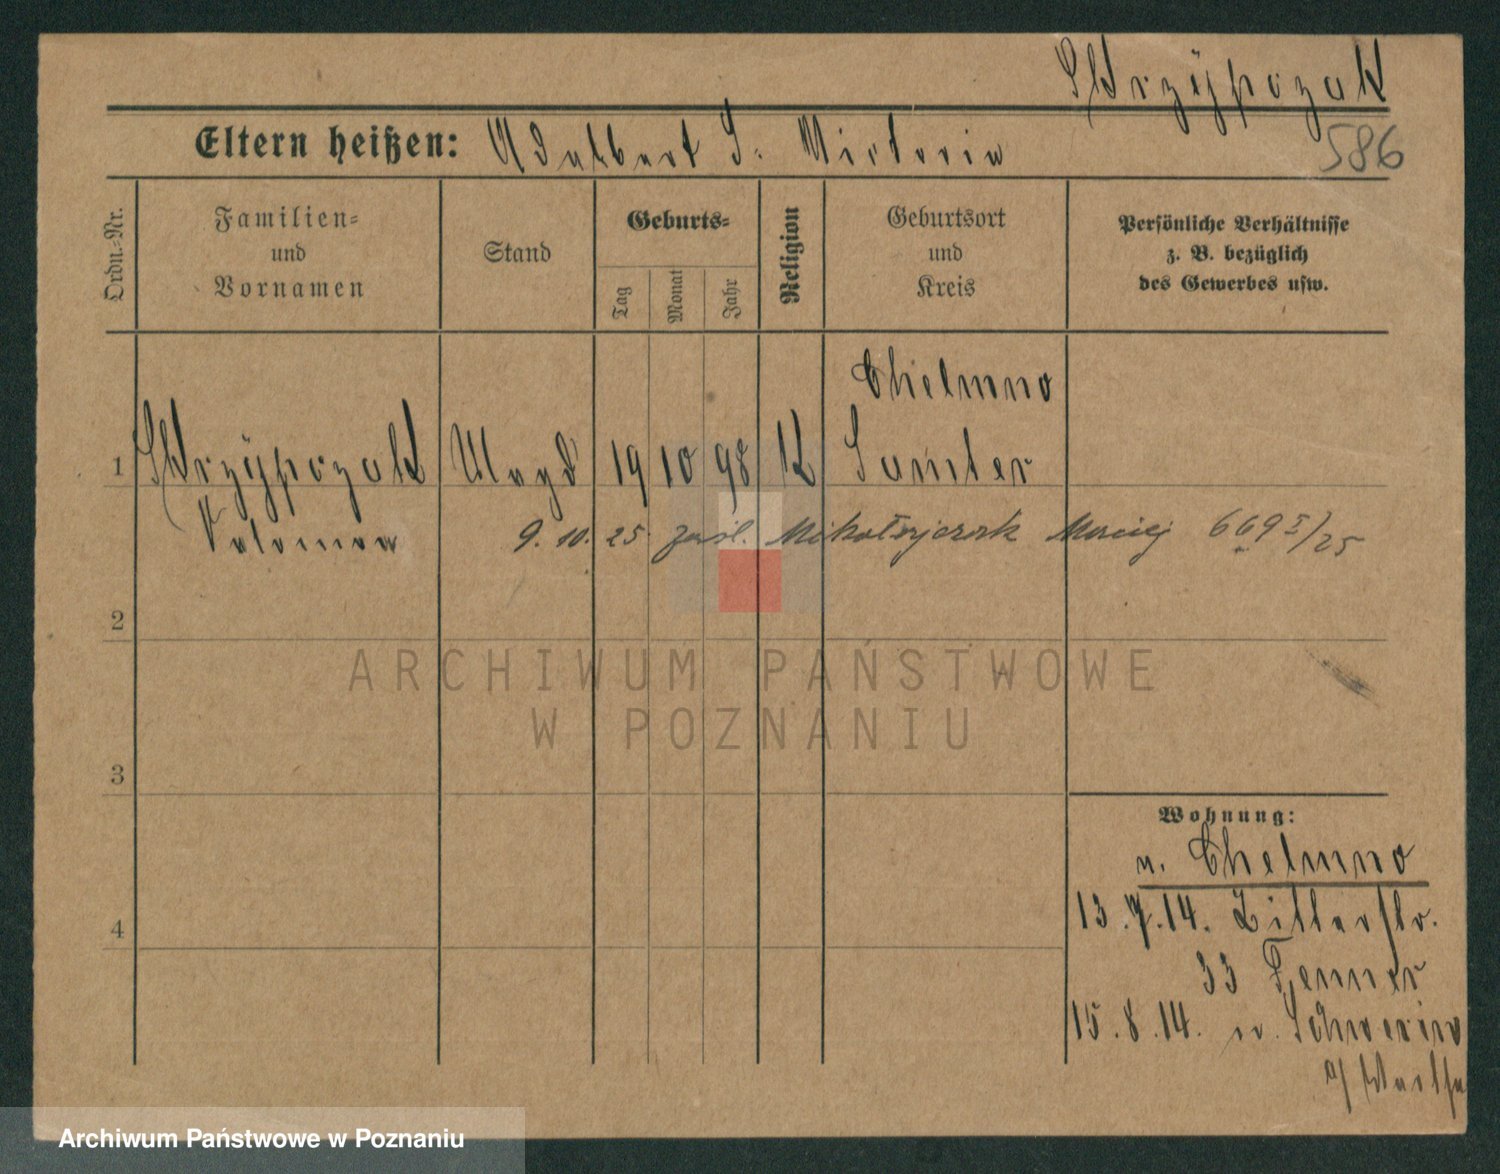 Skrzypczak
Eltern heißen: Adalbert S. Victoria
586
Ordn.-Nr.
Familien-
und
Vornamen
Stand
Geburts-
Tag
Monat
Jahr
Religion
Geburtsort
und
Kreis
Persönliche Verhältnisse
z. B. bezüglich
des Gewerbes usw.
Chelmno
1 Skrzypczak Magd 19 10 98 K Samter
Salomea 9. 10. 25 Mikołajczak Maciej 669 I/25
2
ARCHIWUM PAŃSTWOWE
W POZNANIU
3
Wohnung:
n. Chelmno
4
13.7.14. Ritterstr.
33 Tenner
15.8.14. n. Schwerin
a/Warthe
Archiwum Państwowe w Poznaniu